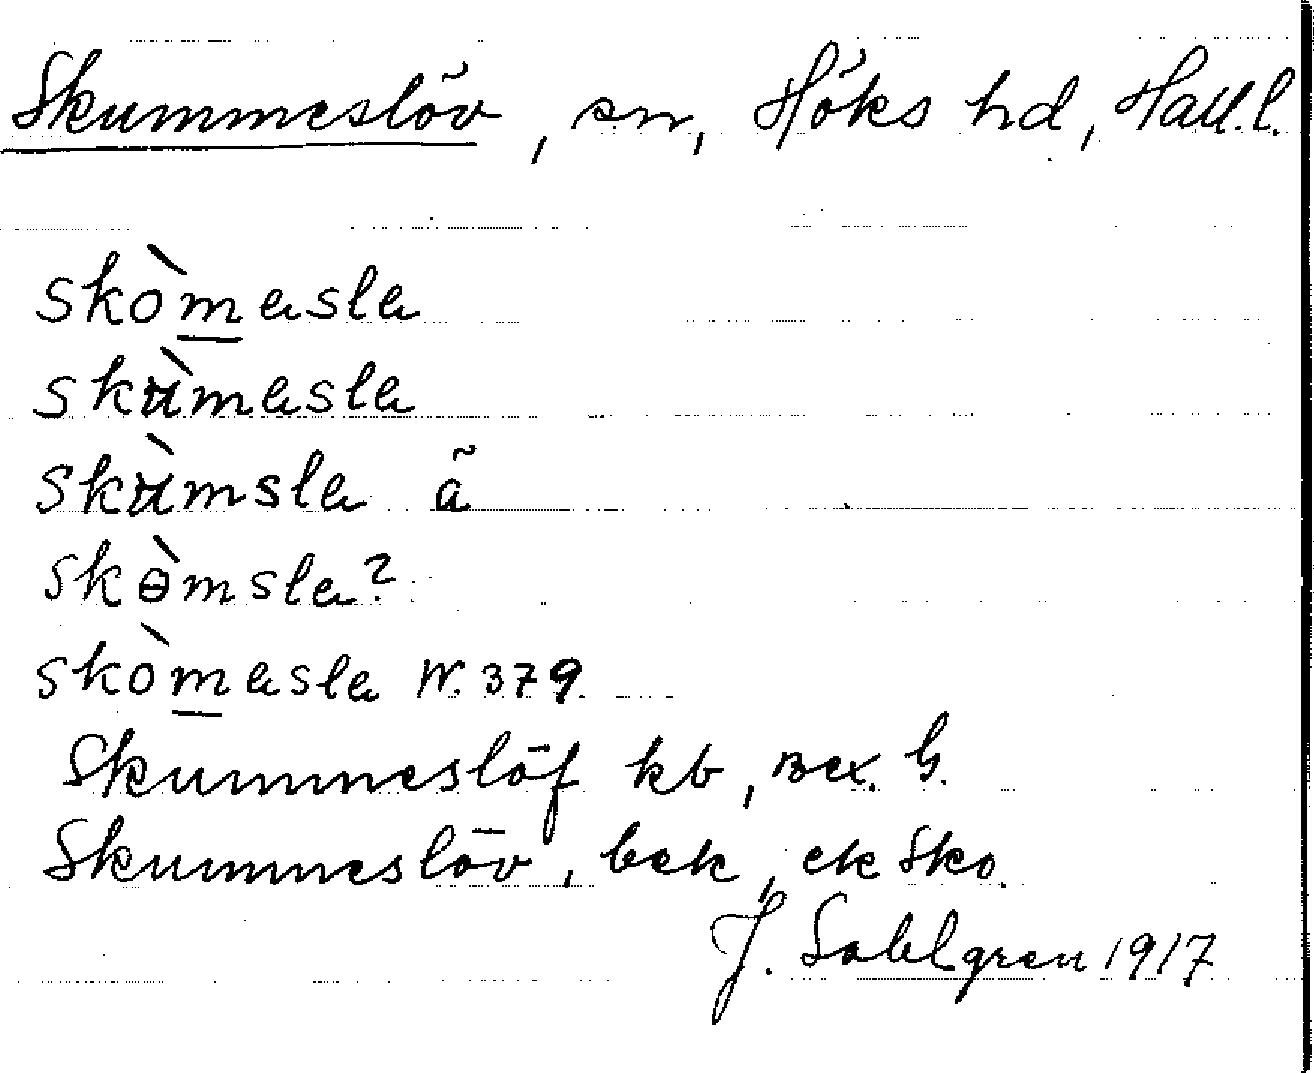 Skummeslöv, sn, Höks hd, Hall.l.
skòmasla
skùmasla
skùmsla å
skɵ̀msla?
skòmasla W. 379.
Skummeslöf kb, Bex. G.
Skummeslöv, bek, ek Sko.
J. Sahlgren 1917